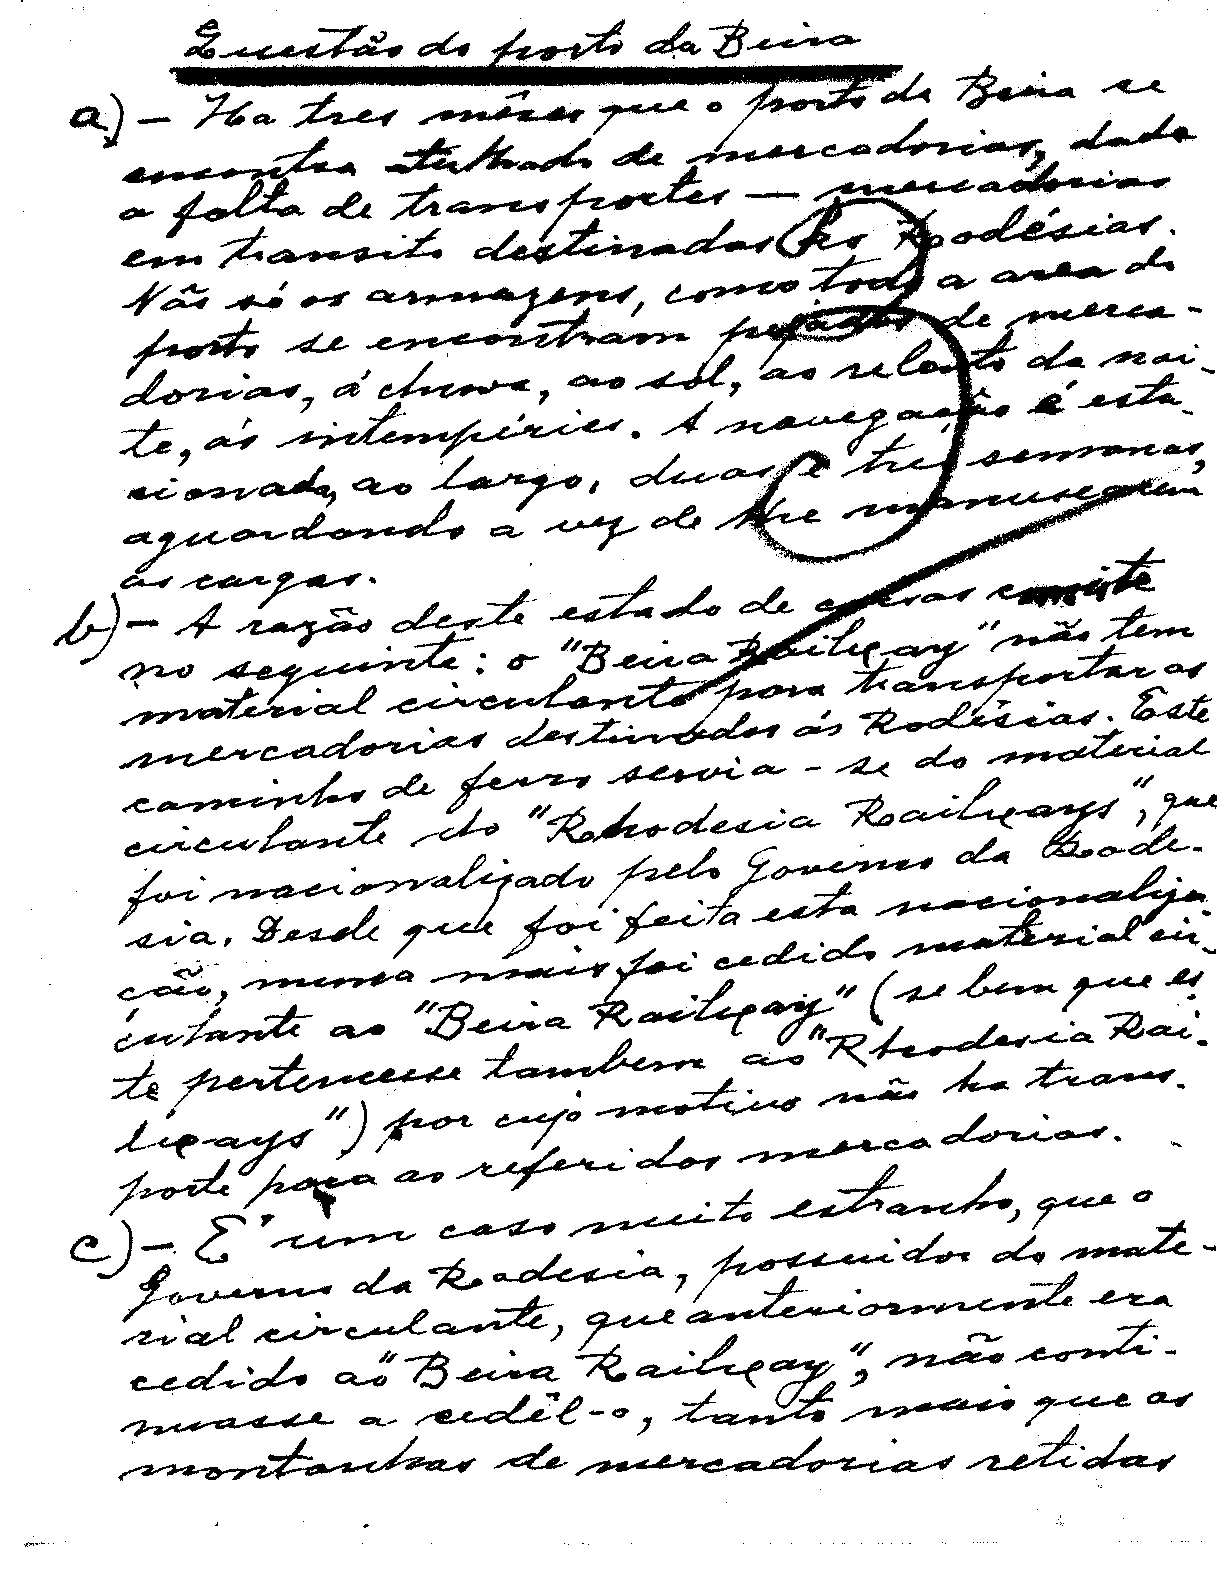 Questão do porto da Beira
a) — Ha tres mêses que o porto da Beira se
encontra atulhado de mercadorias, dada
a falta de transportes — mercadorias
em transito destinadas ás Rodésias.
Não só os armazens, como toda a area do
porto se encontram pejados de merca-
dorias, á chuva, ao sol, ao relento da noi-
te, ás intempéries. A navegação é esta-
cionada, ao largo, duas e tres semanas,
aguardando a vez de lhe manusearem
as cargas.
b) — A razão deste estado de coisas consiste
no seguinte: o "Beira Railway" não tem
material circulante para transportar as
mercadorias destinadas ás Rodésias. Este
caminho de ferro servia-se do material
circulante do "Rhodesia Railways", que
foi nacionalizado pelo Governo da Rode-
sia. Desde que foi feita esta nacionaliza
ção, nunca mais foi cedido material cir-
culante ao "Beira Railway" (se bem que es
te pertencesse tambem ao "Rhodesia Rai-
lways") por cujo motivo não ha trans-
porte para as referidas mercadorias.
c) — É um caso muito estranho, que o
Governo da Rodesia, possuidor do mate-
rial circulante, que anteriormente era
cedido ao "Beira Railway", não conti-
nuasse a cedêl-o, tanto mais que as
montanhas de mercadorias retidas